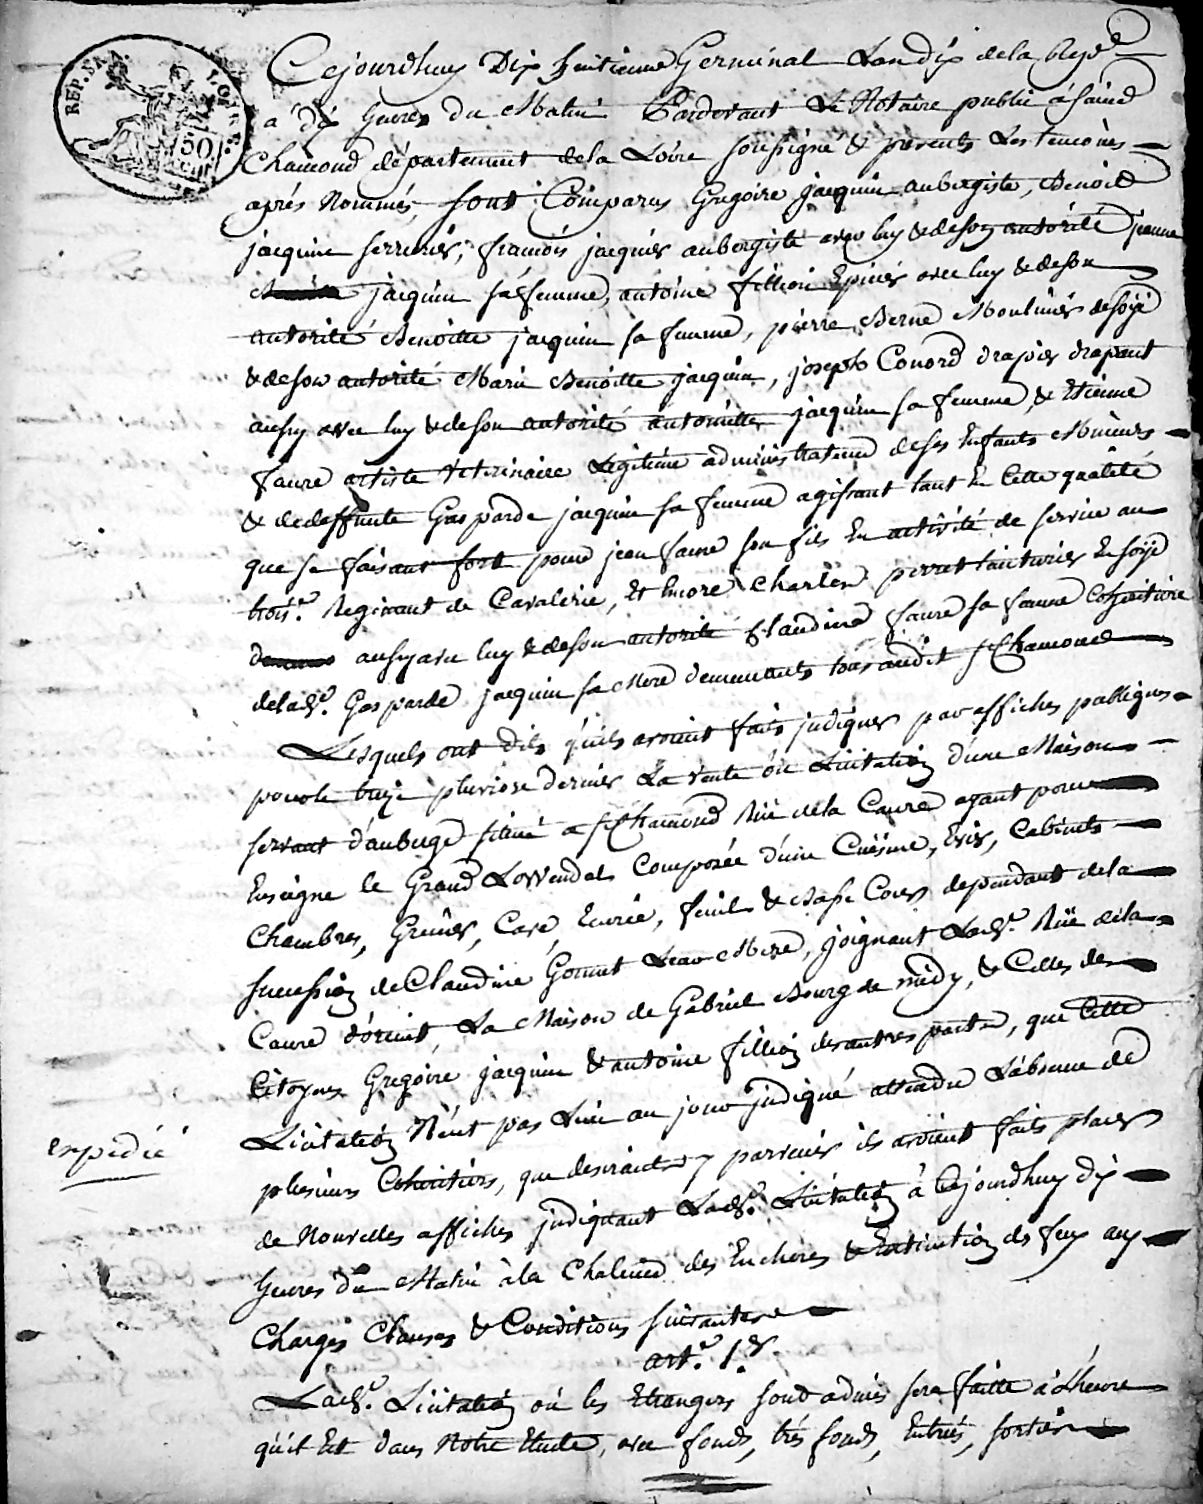 REP. FRA. 50
Cejourdhuy Dix huitieme Germinal Lan dix de la Rep.e
a dix heures du Matin Pardevant Le Notaire public à Saint
Chamond département de la Loire soussigné & présents Les temoins
aprés Nommés, sont Comparus Gregoire jacquin aubergiste, Benoit
jacquin serrurier, françois jacquier aubergiste avec luy & de son autorité jeanne
jacquin sa femme, antoine fillion Epicier avec luy & de son
autorité Benoitte jacquin sa femme, pierre Berne Moulinier de soye
& de son autorité Marie Benoitte jacquin, joseph Conord drapier drapant
aussy avec luy & de son autorité antoinette jacquin sa femme, & Etienne
faure artiste veterinaire Legitime administrateur de ses Enfants Mineurs
& de deffunte Gasparde jacquin sa femme agissant tant En Cette qualité
que se faisant fort pour jean faure son fils En activité de service au
trois.e Regiment de Cavalerie, Et Encore Charles perret tainturier En soye
aussy avec luy & de son autorité Claudine faure sa femme Cohéritiere
de lad.e Gasparde jacquin sa Mere demeurants tous audit St Chamond
Lesquels ont dits qu'ils avoient faits judiquer par affiches publiques
pour le treize pluviose dernier La vente ou Licitation d'une Maison
servant d'auberge située a St Chamond Rüe de la Caure ayant pour
Enseigne le Grand Lowendal Composée d'une Cuisine, Evier, Cabinets
Chambres, Greniers, Cave, Ecurie, fenil & Basse Cour dependant de la
succession de Claudine Gonnet Leur Mere, joignant Lad.e Rüe de la
Caure d'orient, La Maison de Gabriel Bourg de midy, & Celles des
Citoyens Gregoire jacquin & antoine fillion des autres parts, que Cette
Licitation N'eut pas Lieu au jour judiqué attendu L'absence de
plusieurs Cohéritiers, que desirants y parvenir ils avoient faits placer
de Nouvelles affiches judiquant Lad.e Licitation à Cejourdhuy dix
heures du Matin à la Chaleur des Encheres & Extinction des feux aux
Charges Clauses & Conditions suivantes
art.e 1.er
expedié
Lad.e Licitation où les Etrangers sont admis sera faitte à L'heure
qu'il Est dans Notre Etude, avec fonds, trés fonds, Entrées, sorties